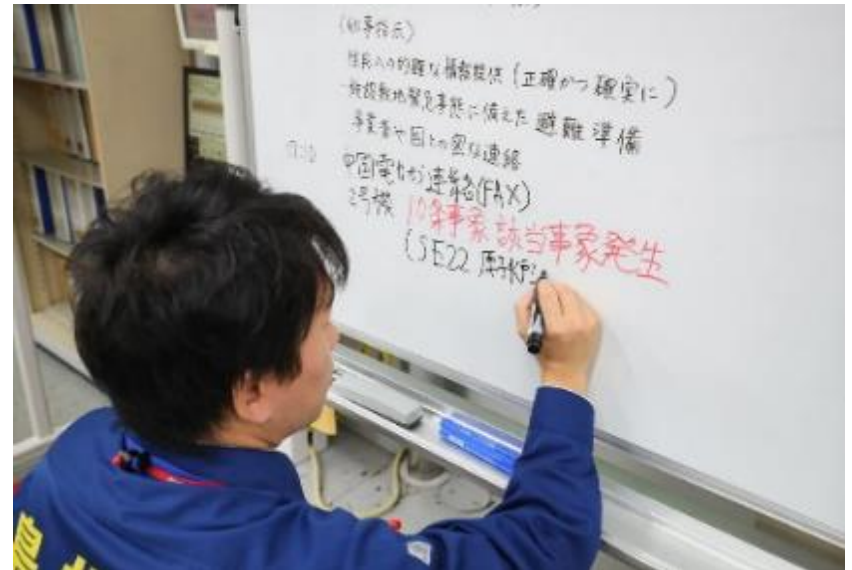 (知事指示)
・住民への的確な情報提供(正確かつ確実に)
・施設敷地緊急事態に備えた避難準備
・事業者や国との密な連絡
中国電力から連絡(FAX)
2号機 10条事象該当事象発生
(SE22 原子炉注
島